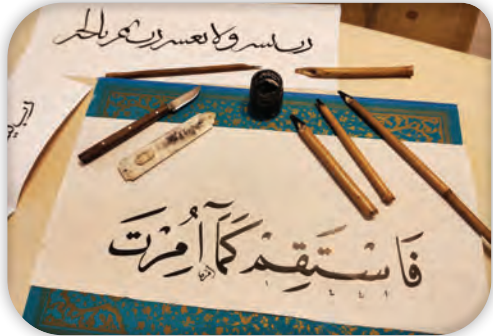 رب يسر ولا تعسر رب تمم بالخير
فَاسْتَقِمْ كَمَٓا اُمِرْتَ